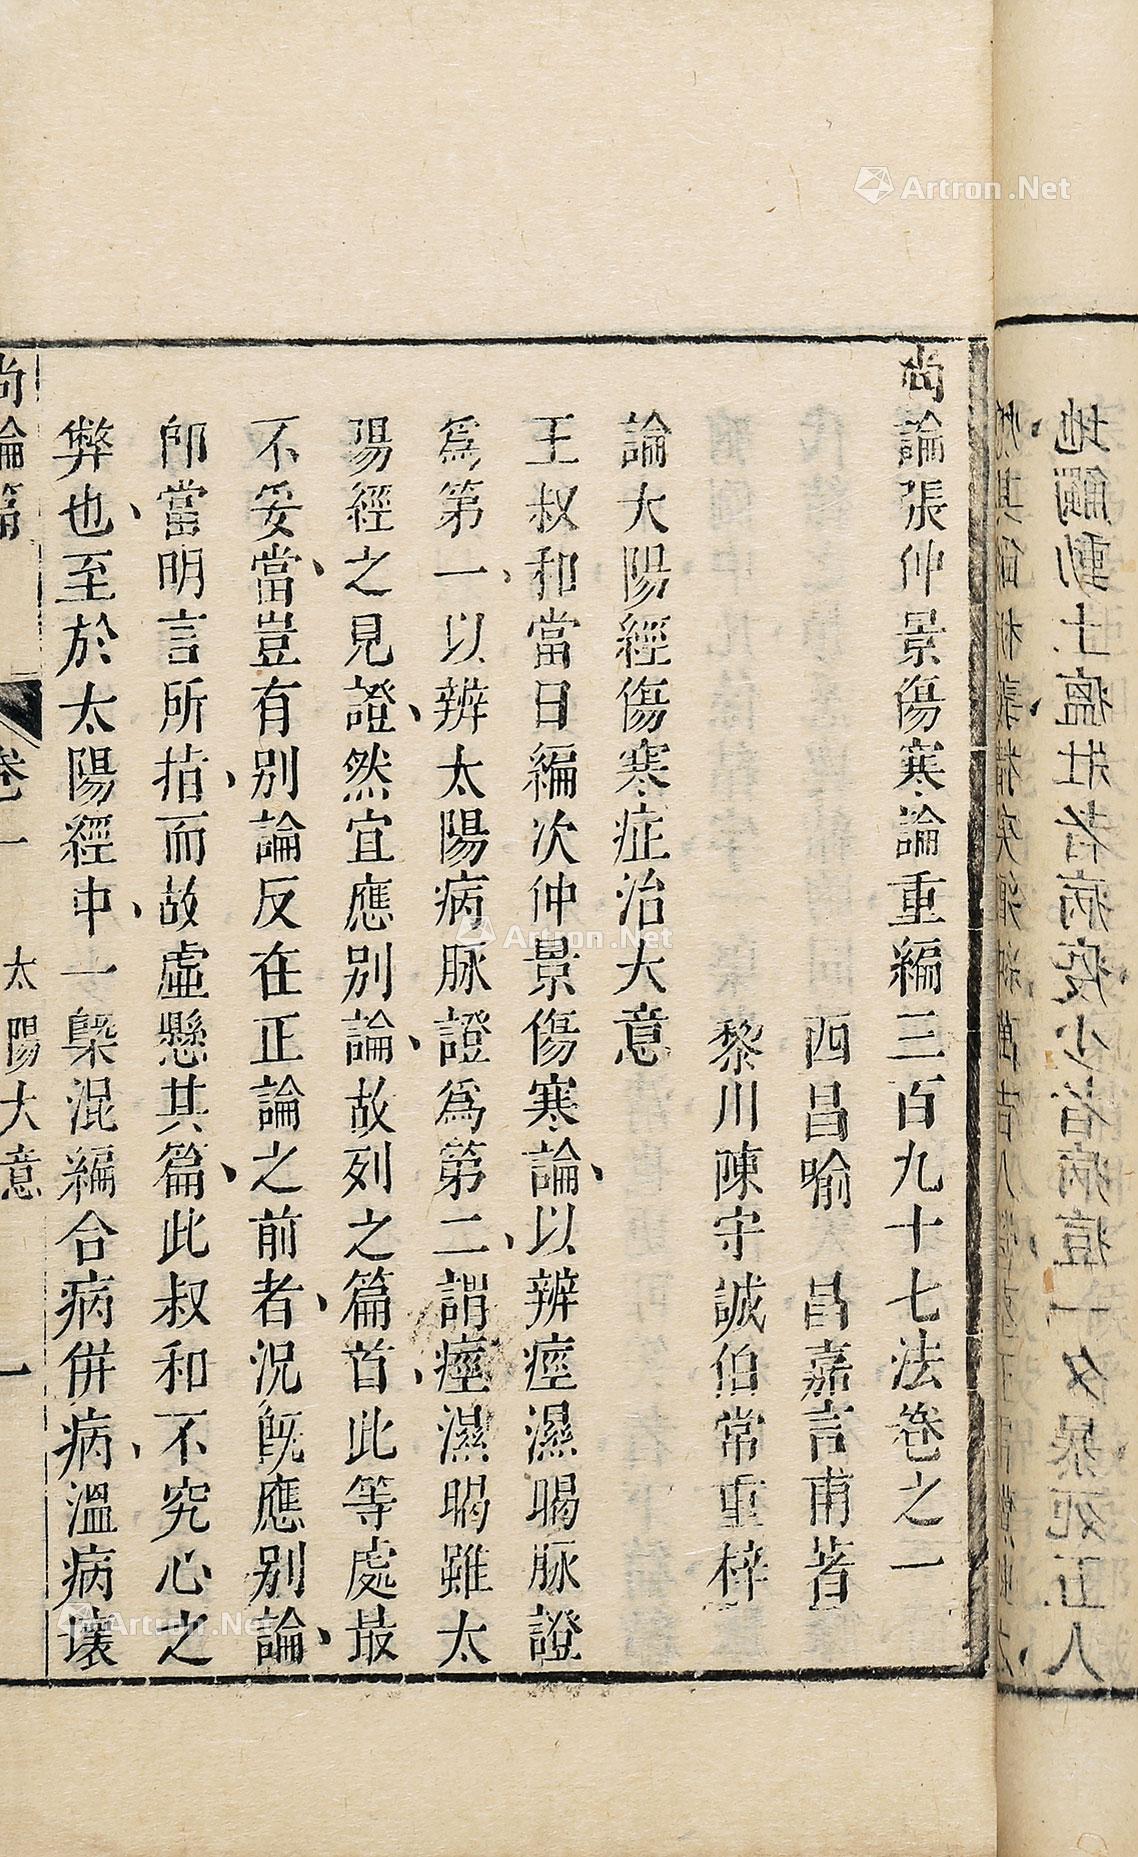 地觸動土瘟壯者病疫少者病痘一夕暴死五人
尚論張仲景傷寒論重編三百九十七法卷之一
西昌喻 昌嘉言甫著
黎川陳守誠伯常重梓
論太陽經傷寒症治大意
王叔和當日編次仲景傷寒論、以辨痙濕暍脉證
爲第一、以辨太陽病脉證爲第二、謂痙濕暍雖太
陽經之見證、然宜應別論、故列之篇首、此等處最
不妥當、豈有別論反在正論之前者、況既應別論、
卽當明言所指、而故虛懸其篇、此叔和不究心之
弊也、至於太陽經中、一槩混編合病併病、溫病壞
尚論篇 卷一 太陽大意 一
Artron.Net
Artron.Net
Artron.Net